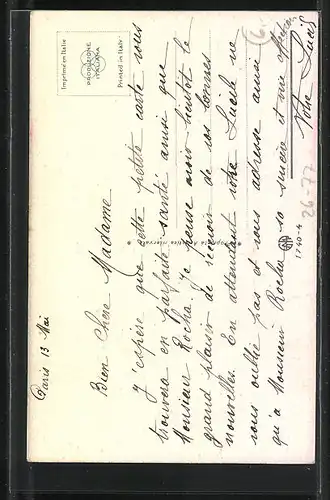 Paris 13 Mai
Bien chère Madame
J'espère que cette petite carte vous
trouvera en parfaite santé ainsi que
Monsieur Rocha. Je pense avoir bientôt le
grand plaisir de recevoir de vos bonnes
nouvelles. En attendant votre Lucile ne
vous oublie pas et vous adresse ainsi
qu'à Monsieur Rocha sa sincère et vive affection
Votre Lucile
Imprimé en Italie
PRODUZIONE
ITALIANA
Printed in Italy
1740-4
26-77